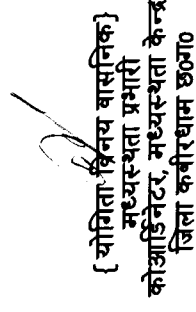 { योगिता विनय वासनिक }
मध्यस्थता प्रभारी
कोआर्डिनेटर, मध्यस्थता केन्द्र
जिला कबीरधाम छ०ग०